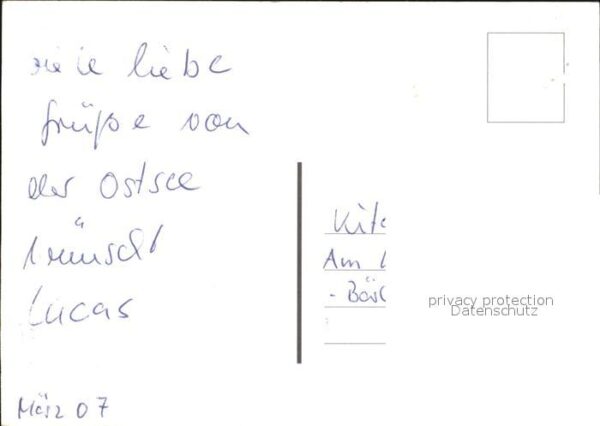 viele liebe
Grüße von
der Ostsee
wünscht
Lucas
März 07
Kita
Am
- Bös
privacy protection
Datenschutz